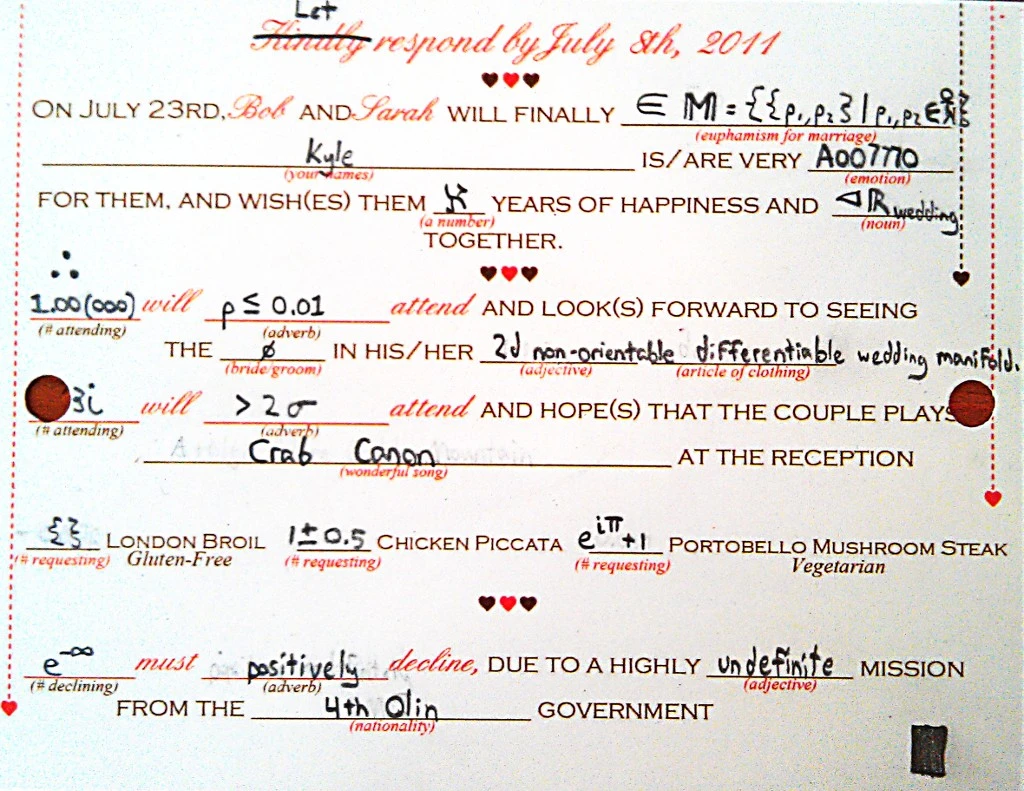 Let
Kindly respond by July 8th, 2011
ON JULY 23RD, Bob AND Sarah WILL FINALLY ∈ M = {{p₁,p₂} | p₁,p₂ ∈ }
(euphamism for marriage)
Kyle IS/ARE VERY A007770
(your names) (emotion)
FOR THEM, AND WISH(ES) THEM YEARS OF HAPPINESS AND ◁ℝ wedding
(a number) (noun)
TOGETHER.
∴
1.00(000) will p ≤ 0.01 attend AND LOOK(S) FORWARD TO SEEING
(# attending) (adverb)
THE ø IN HIS/HER 2d non-orientable differentiable wedding manifold.
(bride/groom) (adjective) (article of clothing)
3i will > 2σ attend AND HOPE(S) THAT THE COUPLE PLAYS
(# attending) (adverb)
Crab Canon AT THE RECEPTION
(wonderful song)
{} LONDON BROIL 1±0.5 CHICKEN PICCATA e^iπ+1 PORTOBELLO MUSHROOM STEAK
(# requesting) Gluten-Free (# requesting) (# requesting) Vegetarian
e^-∞ must positively decline, DUE TO A HIGHLY undefinite MISSION
(# declining) (adverb) (adjective)
FROM THE 4th Olin GOVERNMENT
(nationality)